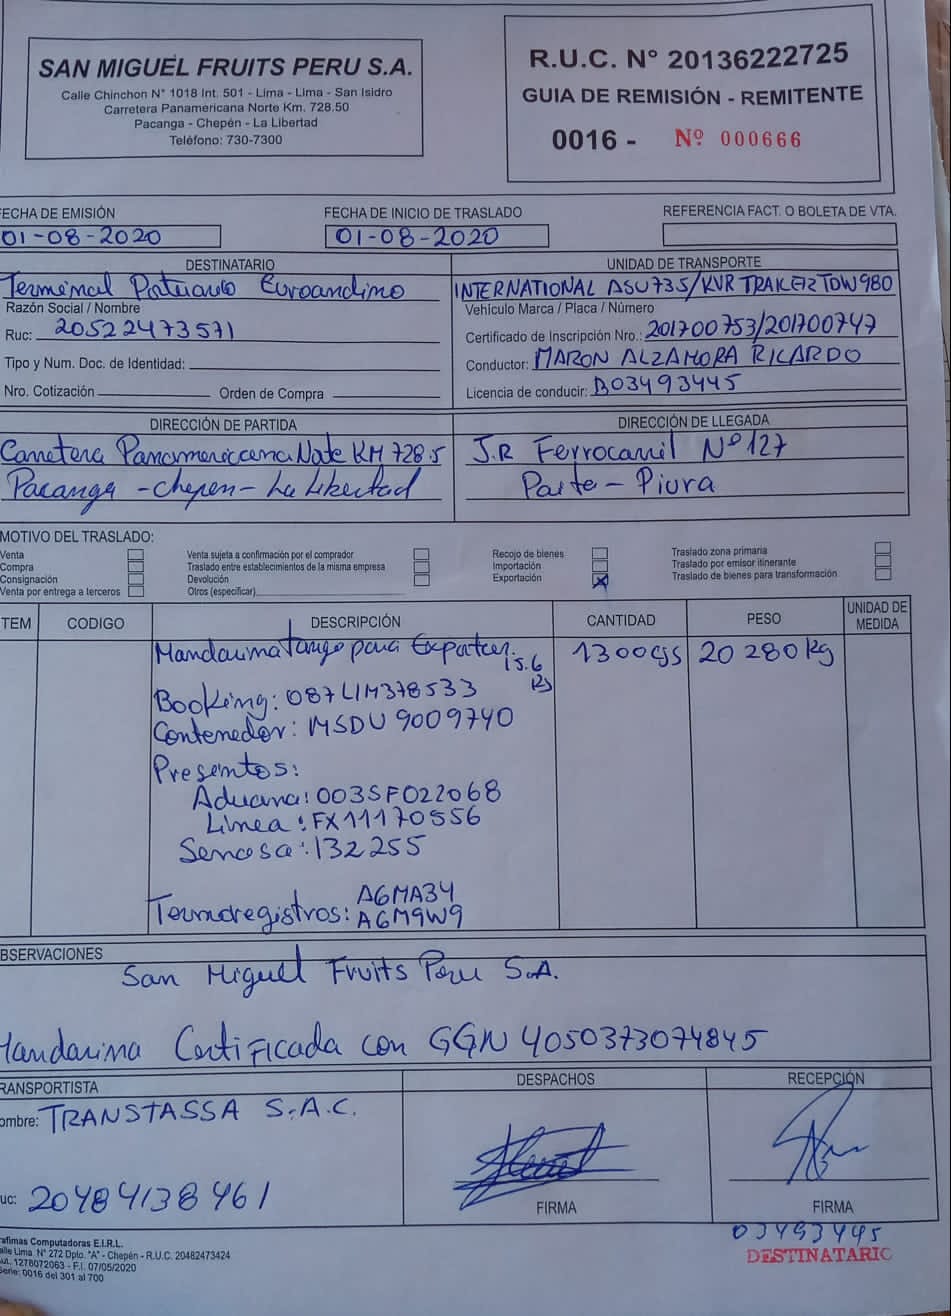 SAN MIGUEL FRUITS PERU S.A.
Calle Chinchon N° 1018 Int. 501 - Lima - Lima - San Isidro
Carretera Panamericana Norte Km. 728.50
Pacanga - Chepén - La Libertad
Teléfono: 730-7300
R.U.C. N° 20136222725
GUIA DE REMISIÓN - REMITENTE
0016 - Nº 000666
FECHA DE EMISIÓN FECHA DE INICIO DE TRASLADO REFERENCIA FACT. O BOLETA DE VTA.
01-08-2020 01-08-2020
DESTINATARIO
Terminal Portuario Euroandino
Razón Social / Nombre
Ruc: 20522473571
Tipo y Num. Doc. de Identidad:
Nro. Cotización Orden de Compra
UNIDAD DE TRANSPORTE
INTERNATIONAL ASU735/KVR TRAILER TOW980
Vehículo Marca / Placa / Número
Certificado de Inscripción Nro.: 201700753/201700747
Conductor: MARON ALZAMORA RICARDO
Licencia de conducir: B03493445
DIRECCIÓN DE PARTIDA
Carretera Panamericana Norte KM 728.5
Pacanga - Chepen - La Libertad
DIRECCIÓN DE LLEGADA
J.R Ferrocarril Nº 127
Paita - Piura
MOTIVO DEL TRASLADO:
Venta
Compra
Consignación
Venta por entrega a terceros
Venta sujeta a confirmación por el comprador
Traslado entre establecimientos de la misma empresa
Devolución
Otros (especificar)
Recojo de bienes
Importación
Exportación X
Traslado zona primaria
Traslado por emisor itinerante
Traslado de bienes para transformación
TEM CODIGO DESCRIPCIÓN CANTIDAD PESO UNIDAD DE MEDIDA
Mandarina Tango para Exportar. 1300cjs 20 280 kg
15.6
Kg
Booking: 087LIM378533
Contenedor: MSDU 9009740
Presintos:
Aduana: 003SF022068
Linea: FX11170556
Senasa: 132255
Termoregistros: A6MA34
A6M9W9
OBSERVACIONES
San Miguel Fruits Peru S.A.
Mandarina Certificada con GGN 4050373074845
TRANSPORTISTA
ombre: TRANSTASSA S.A.C.
uc: 20484138461
DESPACHOS
FIRMA
RECEPCIÓN
FIRMA
03493445
DESTINATARIO
rafimas Computadoras E.I.R.L.
alle Lima. N° 272 Dpto. "A" - Chepén - R.U.C. 20482473424
ut. 1278072063 - F.I. 07/05/2020
Serie: 0016 del 301 al 700